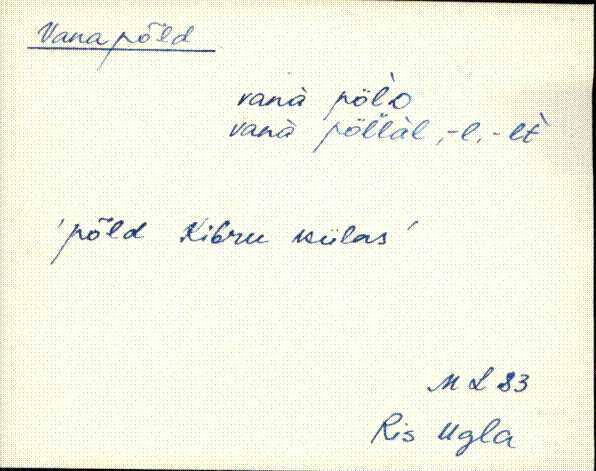 Vanapõld
vanà põlD
vanà põllàl, -l, -lt
'põld Kibru külas'
M L 83
Ris Ugla